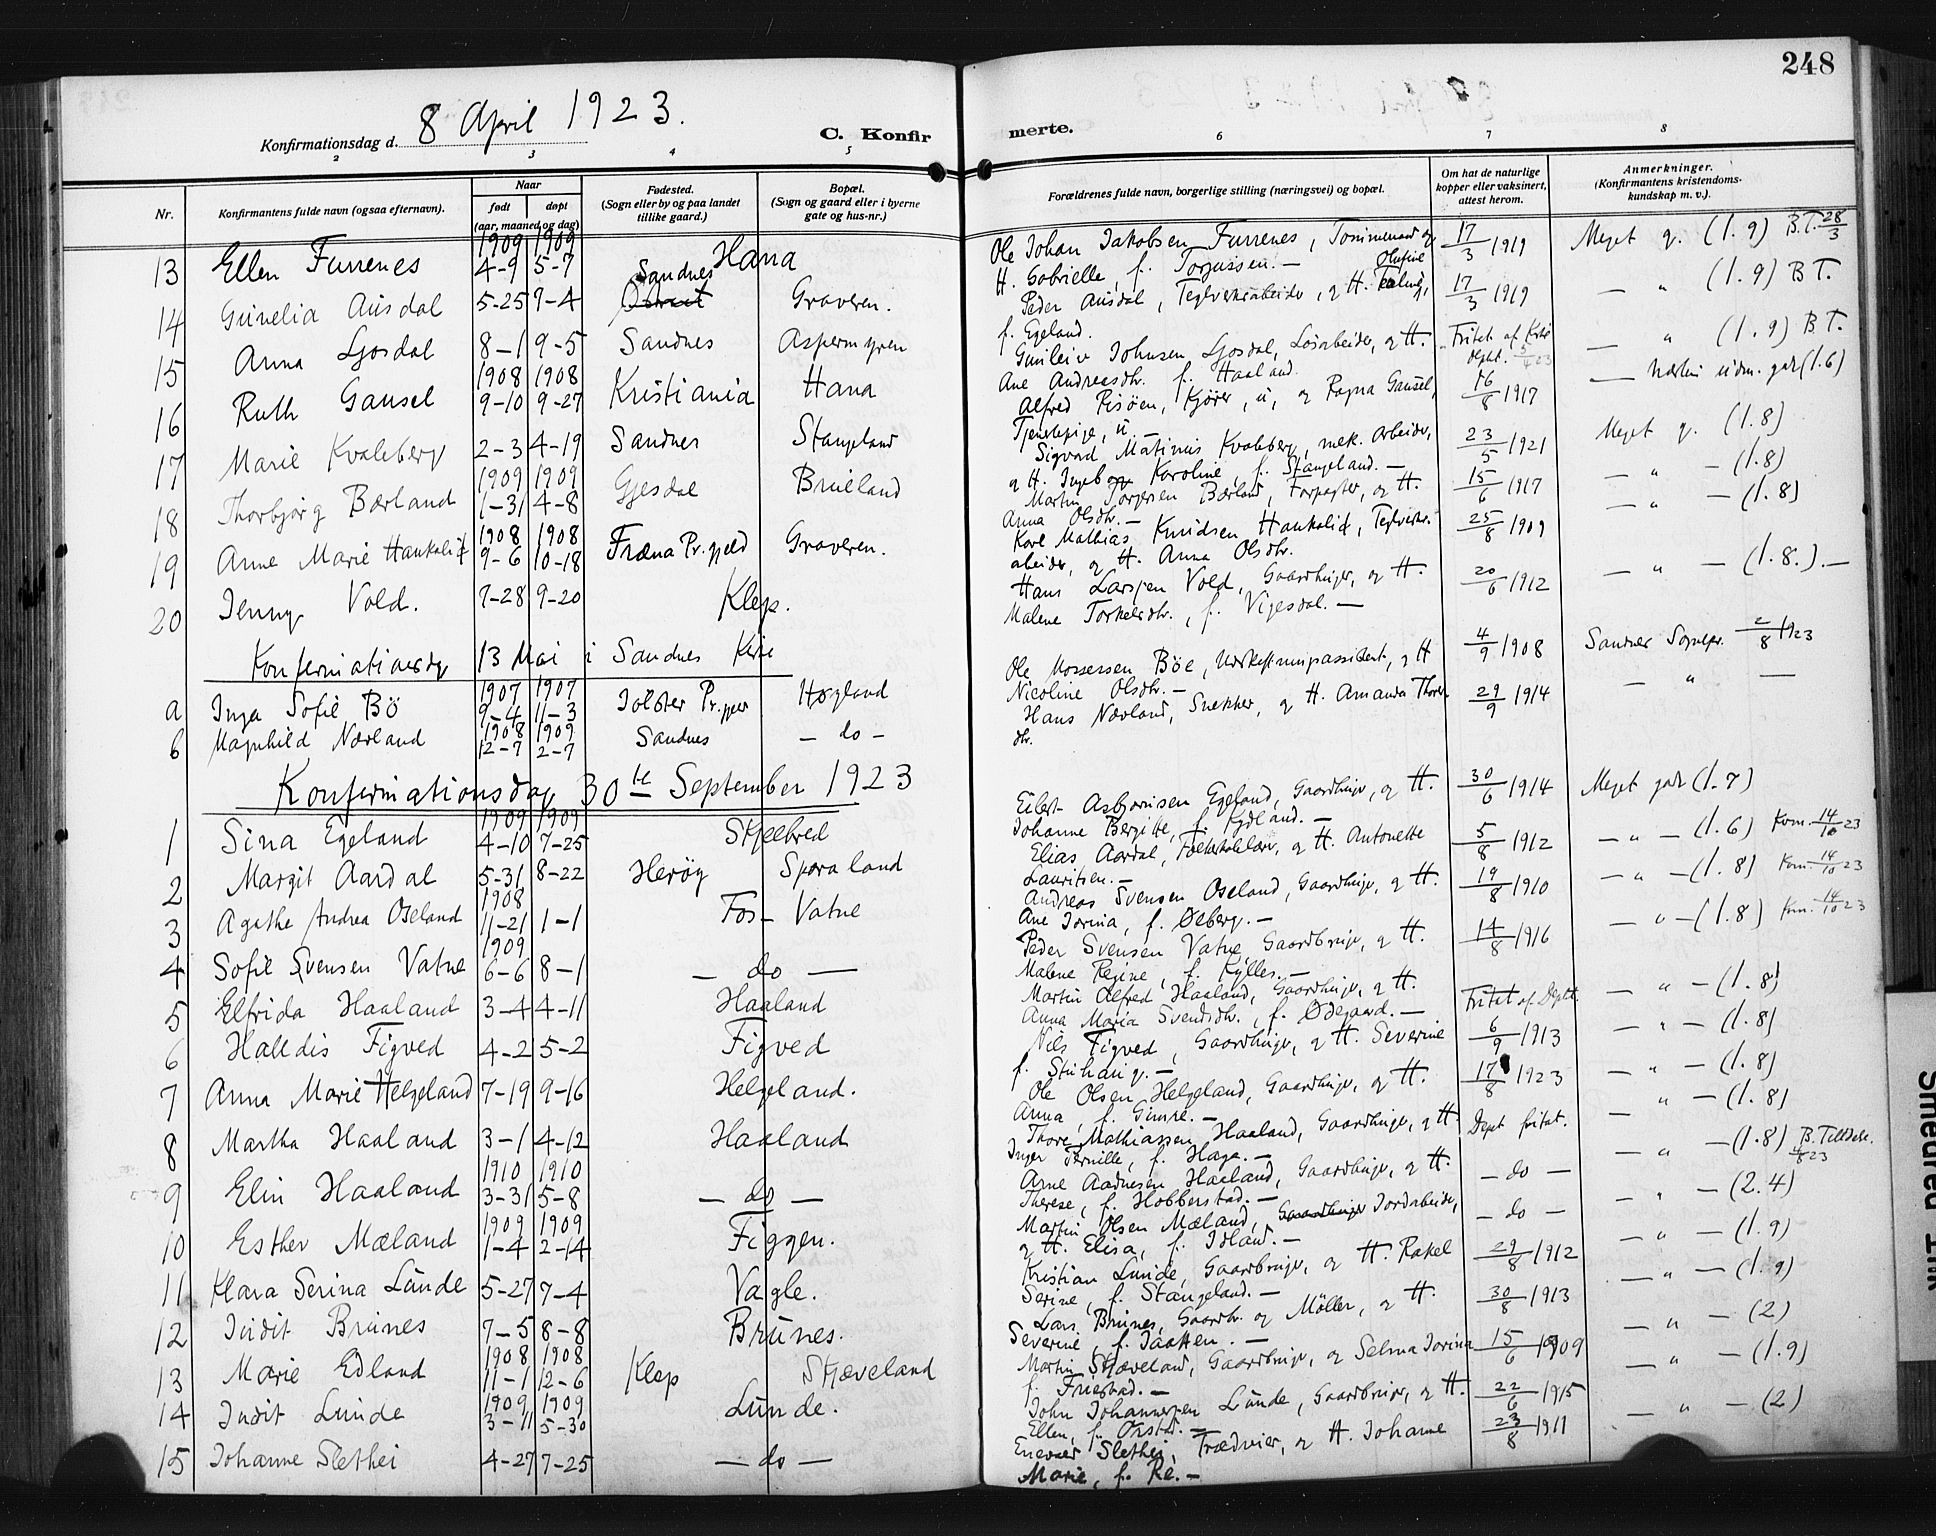 248
8 April 1923.
Konfirmationsdag d.
C. Konfir
merte.
2 3 4 5 6 7 8
Nr.
Konfirmantens fulde navn (ogsaa efternavn).
Naar
født
døpt
(aar, maaned og dag)
Fødested.
(Sogn eller by og paa landet
tillike gaard.)
Bopæl.
(Sogn og gaard eller i byerne
gate og hus-nr.)
Forældrenes fulde navn, borgerlige stilling (næringsvei) og bopæl.
Om hat de naturlige
kopper eller vaksinert,
attest herom.
Anmerkninger.
(Konfirmantens kristendoms-
kundskap m. v.).
1909 1909
13 Ellen Furrenes 4-9 5-7 Hana
Ole Johan Jakobsen Furrenes, Tømmermand og 17/3 1919 Meget g. (1.9) B.T. 28/3
H. Gabrielle, f. Torjussen. —
14 Gunelia Ausdal 5-25 9-4 Sandnes Graveren.
Peder Ausdal, Teglverksarbeider, og H. Olufine 17/3 1919 — " (1.9) B T.
f. Egeland.
15 Anna Ljosdal 8-1 9-5 Sandnes Aspermyren
Gunleiv Johnsen Ljosdal, Løsarbeider, og H. Fritat af Kirke — " (1.9) B T.
Ane Andreasdtr. f. Haaland. dept. 5/4 23
1908 1908
16 Ruth Gausel 9-10 9-27 Kristiania Hana
Alfred Risøen, Kjører, u, og Ragna Gausel, 16/8 1917 — Næsten udm. godt (1.6)
Tjenestepige, u. —
17 Marie Kvaleberg 2-3 4-19 Sandnes Stangeland
Sigvard Matinius Kvaleberg, mek. Arbeider, 23/5 1921 Meget g. (1.8)
og H. Ingeborg Karoline, f. Stangeland. —
1909 1909
18 Thorbjørg Bærland 1-31 4-8 Gjesdal Brueland
Martin Torgersen Bærland, Forpagter, og H. 15/6 1917 — " — (1.8)
Anna Olsdtr. —
1908 1908
19 Anne Marie Haukalid 9-6 10-18 Fræna Pr.gjeld Graveren.
Karl Mathias Knudsen Haukalid, Teglverks- 25/8 1909 — " — (1.8)
abeider, og H. Anna Olsdtr.
20 Jenny Vold. 7-28 9-20 Klep.
Hans Larsen Vold, Gaardbruger, og H. 20/6 1912 — " — (1.8.). —
Malene Torkelsdtr., f. Vigesdal. —
Konfirmationsdag 13 Mai i Sandnes Kirke
1907 1907
a Inga Sofie Bö 9-4 11-3 Jölster Pr.gjeld Høgland
Ole Mossersen Böe, Uldkoftninpassistent, og H 4/9 1908 Sandnes Sognepr. 2/8 1923
Nicoline Olsdtr. —
1908 1909
b Magnhild Nærland 12-7 2-7 Sandnes — do —
Hans Nærland, Snekker, og H. Amanda Thores- 29/9 1914 — " —
dtr.
Konfirmationsdag 30te September 1923
1909 1909
1 Sina Egeland 4-10 7-25 Skjelbred
Eilert Asbjørnsen Egeland, Gaardbruger, og H. 30/6 1914 Meget godt (1.7)
Johanne Bergitte, f. Kydland. —
2 Margit Aardal 5-31 8-22 Herøy Sporaland
Elias Aardal, Folkeskolelærer, og H. Antonette 5/8 1912 — " — (1.6) Kom. 14/10 23
Lauritsen. —
1908
3 Agathe Andrea Oseland 11-21 1-1 Fos-Vatne
Andreas Svensen Oseland, Gaardbruger, og H. 19/8 1910 — " — (1.8) Kom. 14/10 23
Ane Jorina, f. Øeberg. —
1909
4 Sofie Svensen Vatne 6-6 8-1 — do —
Peder Svensen Vatne, Gaardbruger, og H. 14/8 1916 — " — (1.8) Kom. 14/10 23
Malene Regine, f. Kylles. —
5 Elfrida Haaland 3-4 4-11 Haaland
Martin Alfred Haaland, Gaardbruger, og H. Fritat af Deptt. — " — (1.8)
Anna Maria Svendsdtr., f. Ødegaard. —
6 Halldis Figved 4-2 5-2 Figved
Nils Figved, Gaardbruger, og H. Severine 6/9 1913 — " — (1.8)
f. Stuhaug. —
7 Anna Marie Helgeland 7-19 9-16 Helgeland.
Ole Olsen Helgeland, Gaardbruger, og H. 17/8 1923 — " — (1.8)
Anna, f. Gimre. —
8 Martha Haaland 3-1 4-12 Haaland
Thore Mathiassen Haaland, Gaardbruger, og H. Dept fritat. — " — (1.8)
Inger Pernille, f. Haga. —
1910 1910
9 Elin Haaland 3-31 5-8 — do —
Arne Aadnesen Haaland, Gaardbruger, og H. — do — — " — (1.8) B. Tilldele. 4/8 23
Therese, f. Hobberstad. —
1909 1909
10 Esther Mæland 1-4 2-14 Figgen.
Martin Olsen Mæland, Gaardbruger Jordarbeider, — do — — " — (2.4)
og H. Elisa, f. Idland. —
11 Klara Serina Lunde 5-27 7-4 Vagle.
Kristian Lunde, Gaardbruger, og H. Rakel 29/8 1912 — " — (1.9)
Serine, f. Stangeland. —
12 Judit Brunes 7-5 8-8 Brunes.
Lars Brunes, Gaardbr. og Möller, og H. 30/8 1913 — " — (1.9)
Severine, f. Jaatten. —
1908 1908
13 Marie Edland 11-1 12-6 Klep Skjæveland
Martin Skjæveland, Gaardbruger, og Selma Jorina 15/6 1909 — " — (2)
f. Fruestad. —
1909 1909
14 Judit Lunde 3-11 5-30 Lunde.
John Johannessen Lunde, Gaardbruger, og H. 22/6 1915 — " — (1.9)
Ellen, f. Orstad. —
15 Johanne Slethei 4-27 7-25 — do —
Enevær Slethei, Trædreier, og H. Johanne 23/8 1911 — " — (2)
Marie, f. Re. —